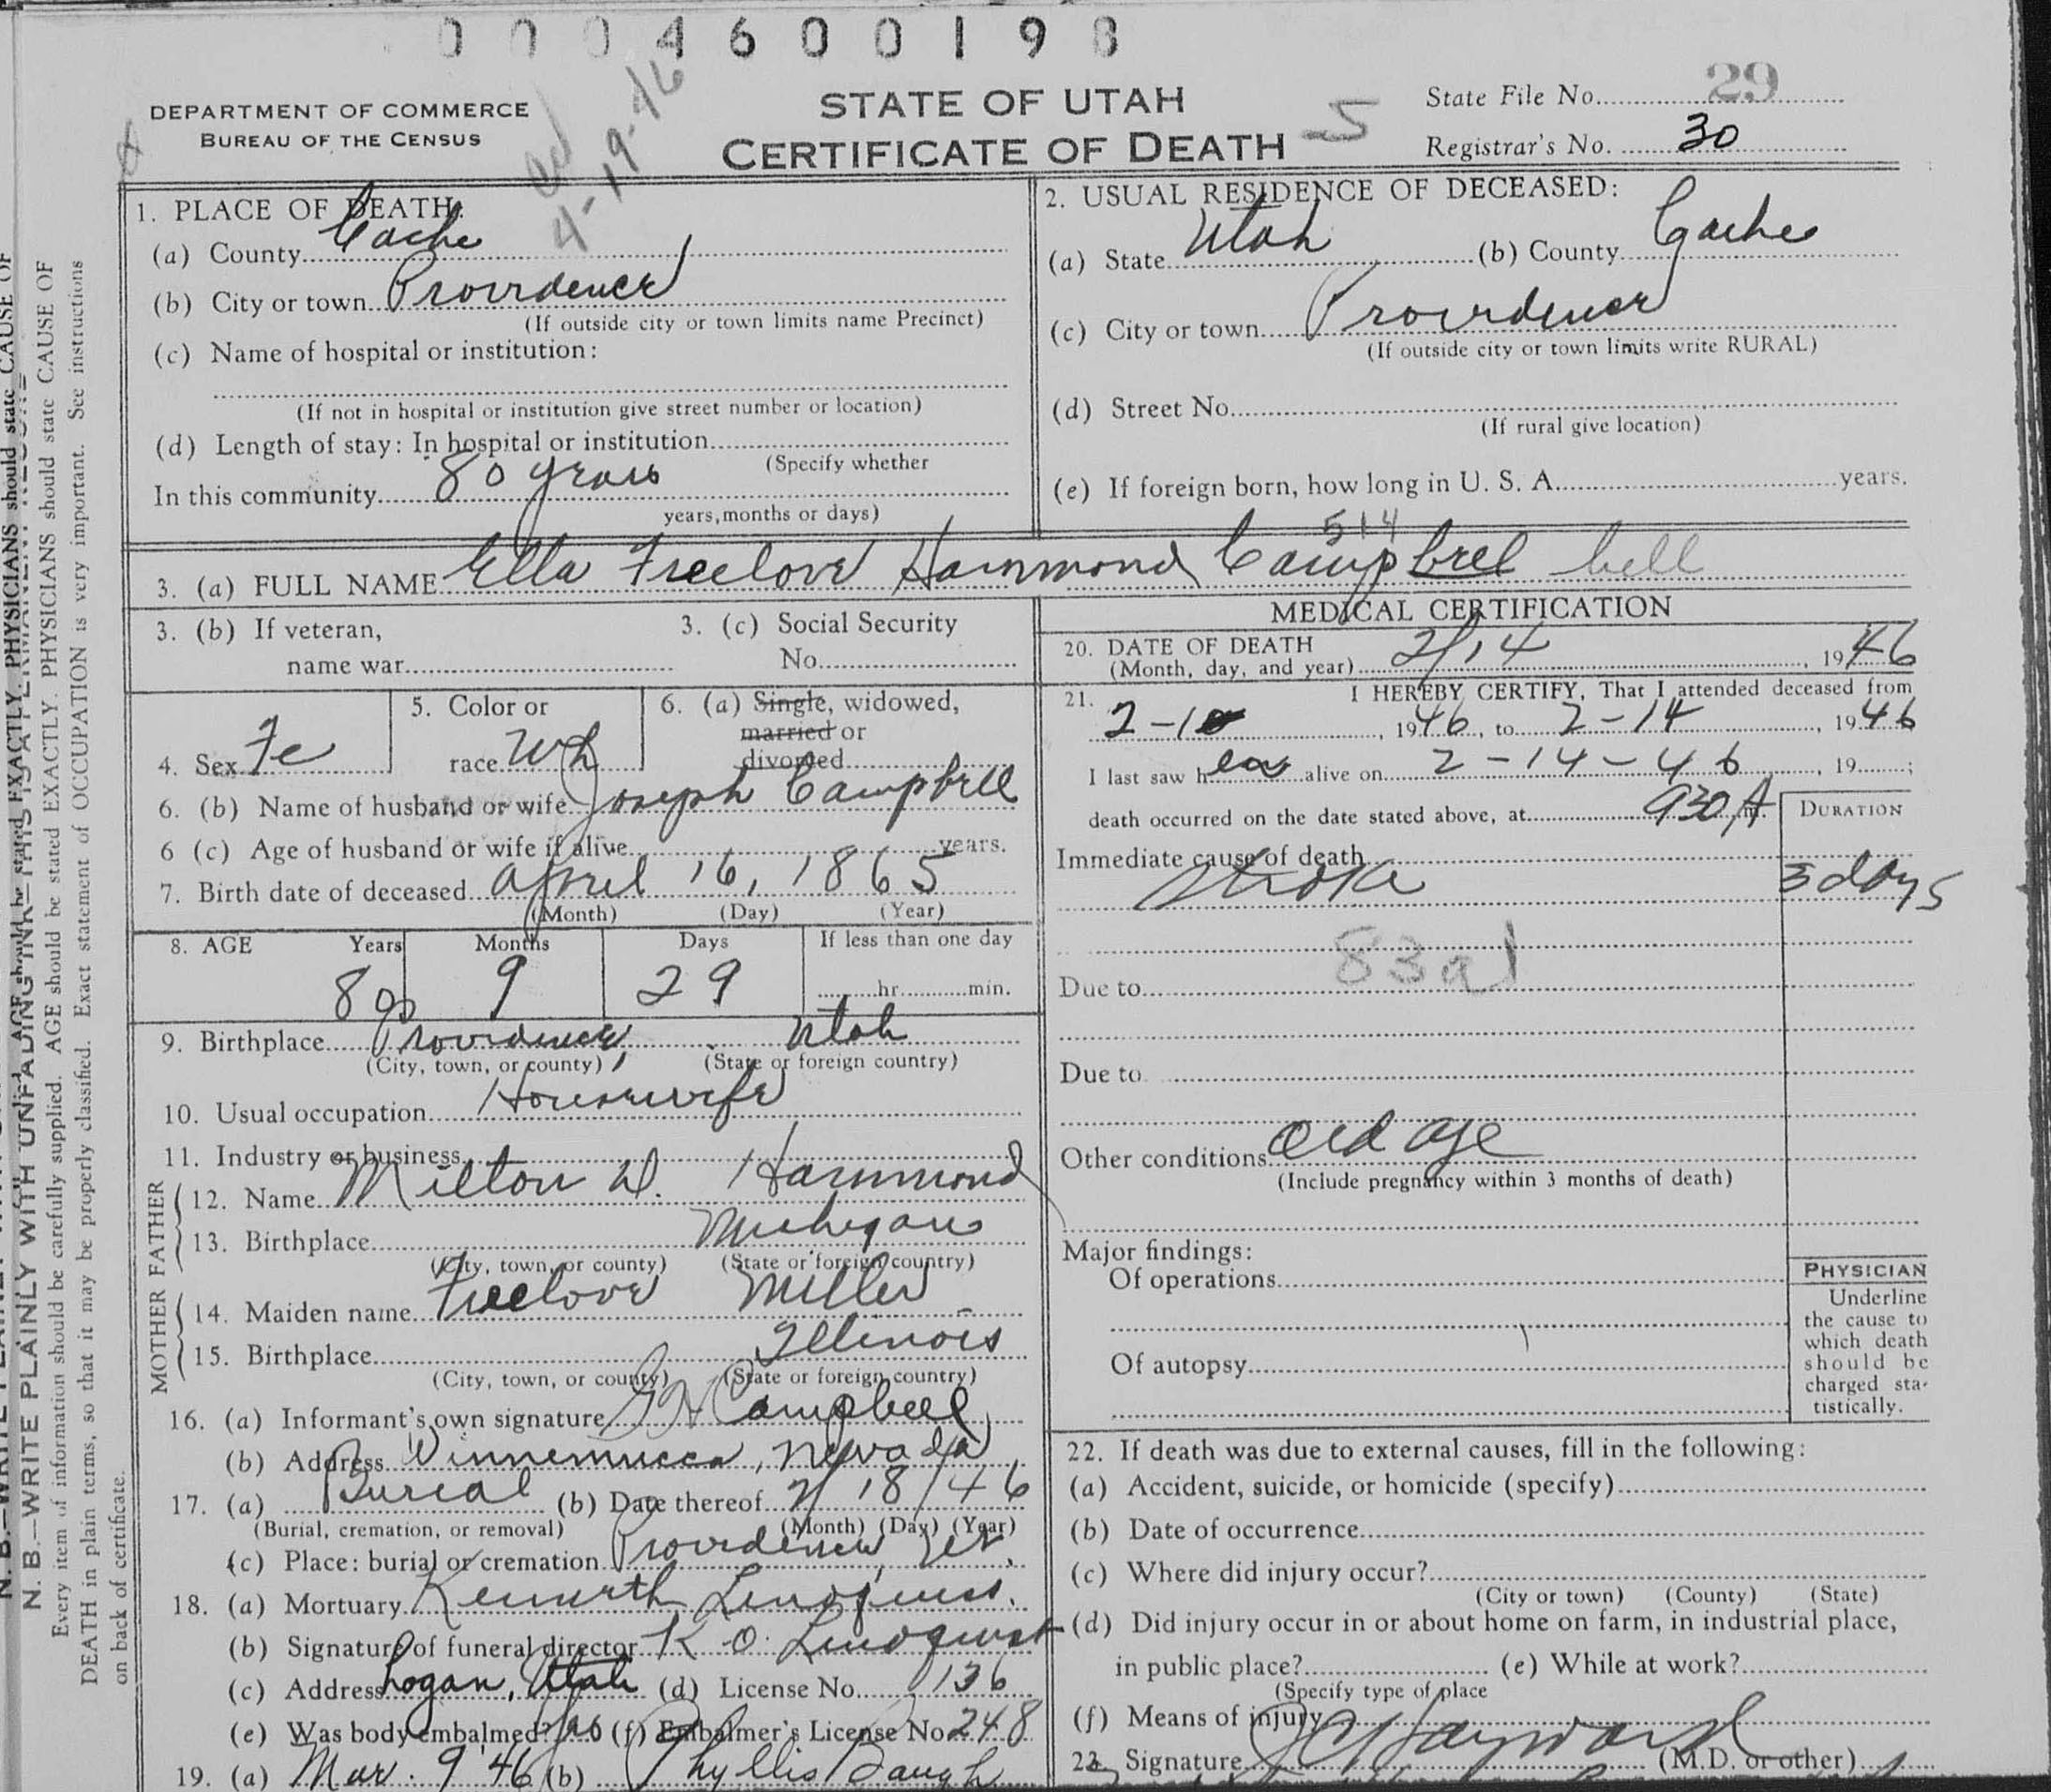 0004600198
DEPARTMENT OF COMMERCE
BUREAU OF THE CENSUS
4-19-46
STATE OF UTAH
CERTIFICATE OF DEATH
5
State File No. 29
Registrar's No. 30
1. PLACE OF DEATH:
(a) County Cache
(b) City or town Providence
(If outside city or town limits name Precinct)
(c) Name of hospital or institution:
(If not in hospital or institution give street number or location)
(d) Length of stay: In hospital or institution
(Specify whether
In this community 80 years
years, months or days)
2. USUAL RESIDENCE OF DECEASED:
(a) State Utah (b) County Cache
(c) City or town Providence
(If outside city or town limits write RURAL)
(d) Street No.
(If rural give location)
(e) If foreign born, how long in U. S. A. years.
514
3. (a) FULL NAME Ella Freelove Hammond Campbell bell
3. (b) If veteran,
name war
3. (c) Social Security
No.
4. Sex Fe
5. Color or
race Wh
6. (a) Single, widowed,
married or
divorced
6. (b) Name of husband or wife Joseph Campbell
6 (c) Age of husband or wife if alive years.
7. Birth date of deceased April 16, 1865
(Month) (Day) (Year)
8. AGE Years Months Days If less than one day
80 9 29 hr. min.
9. Birthplace Providence, Utah
(City, town, or county) (State or foreign country)
10. Usual occupation Housewife
11. Industry or business
FATHER
12. Name Milton D. Hammond
13. Birthplace Michigan
(City, town, or county) (State or foreign country)
MOTHER
14. Maiden name Freelove Miller
15. Birthplace Illinois
(City, town, or county) (State or foreign country)
16. (a) Informant's own signature Campbell
(b) Address Winnemucca, Nevada
17. (a) Burial (b) Date thereof 2/18/46
(Burial, cremation, or removal) (Month) (Day) (Year)
(c) Place: burial or cremation Providence
18. (a) Mortuary Kenneth Lindquist.
(b) Signature of funeral director K O. Lindquist
(c) Address Logan, Utah (d) License No. 136
(e) Was body embalmed? Yes (f) Embalmer's License No. 248
19. (a) Mar. 9 46 (b) Phyllis Baugh
MEDICAL CERTIFICATION
20. DATE OF DEATH
(Month, day, and year) 2/14, 1946
21. I HEREBY CERTIFY, That I attended deceased from
2-10, 1946, to 2-14, 1946
I last saw her alive on 2-14-46, 19 ;
death occurred on the date stated above, at 930 A m.
DURATION
Immediate cause of death
Stroke 3 days
83a1
Due to
Due to
Other conditions Old age
(Include pregnancy within 3 months of death)
Major findings:
Of operations
Of autopsy
PHYSICIAN
Underline
the cause to
which death
should be
charged sta-
tistically.
22. If death was due to external causes, fill in the following:
(a) Accident, suicide, or homicide (specify)
(b) Date of occurrence
(c) Where did injury occur?
(City or town) (County) (State)
(d) Did injury occur in or about home on farm, in industrial place,
in public place? (e) While at work?
(Specify type of place
(f) Means of injury
23. Signature Hayward (M.D. or other)
N. B.—WRITE PLAINLY WITH UNFADING INK—THIS IS A PERMANENT RECORD
Every item of information should be carefully supplied. AGE should be stated EXACTLY. PHYSICIANS should state CAUSE OF
DEATH in plain terms, so that it may be properly classified. Exact statement of OCCUPATION is very important. See instructions
on back of certificate.